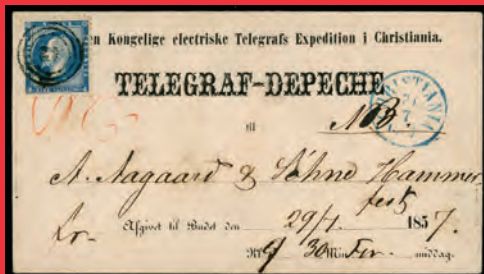 en Kongelige electriske Telegrafs Expedition i Christiania.
TELEGRAF-DEPECHE
til
NB.
A. Aagaard & Söhne Hammer-
fest
Afgivet til Budet den 29/7. 1857.
30 Min For middag.